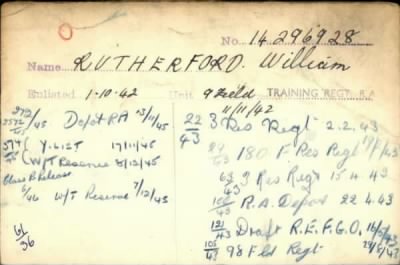 No. 14296928
Name RUTHERFORD. William
Enlisted 1-10-42 Unit 9 Field TRAINING REGT. R.A
11/11/42
Depot RA 13/11/45
Y. LIST 17/11/45
W/T Reserve 8/12/45
Class B Release
6/46 W/T Reserve 7/12/45
61/36
22/43 3 Res Regt 2.2.43
180. F Res Regt
63/43 3 Res Regt 15.4.43
108/43 R.A. Depot 22.4.43
121/43 Draft R.E.F.G.O.
105/43 98 Fld Regt